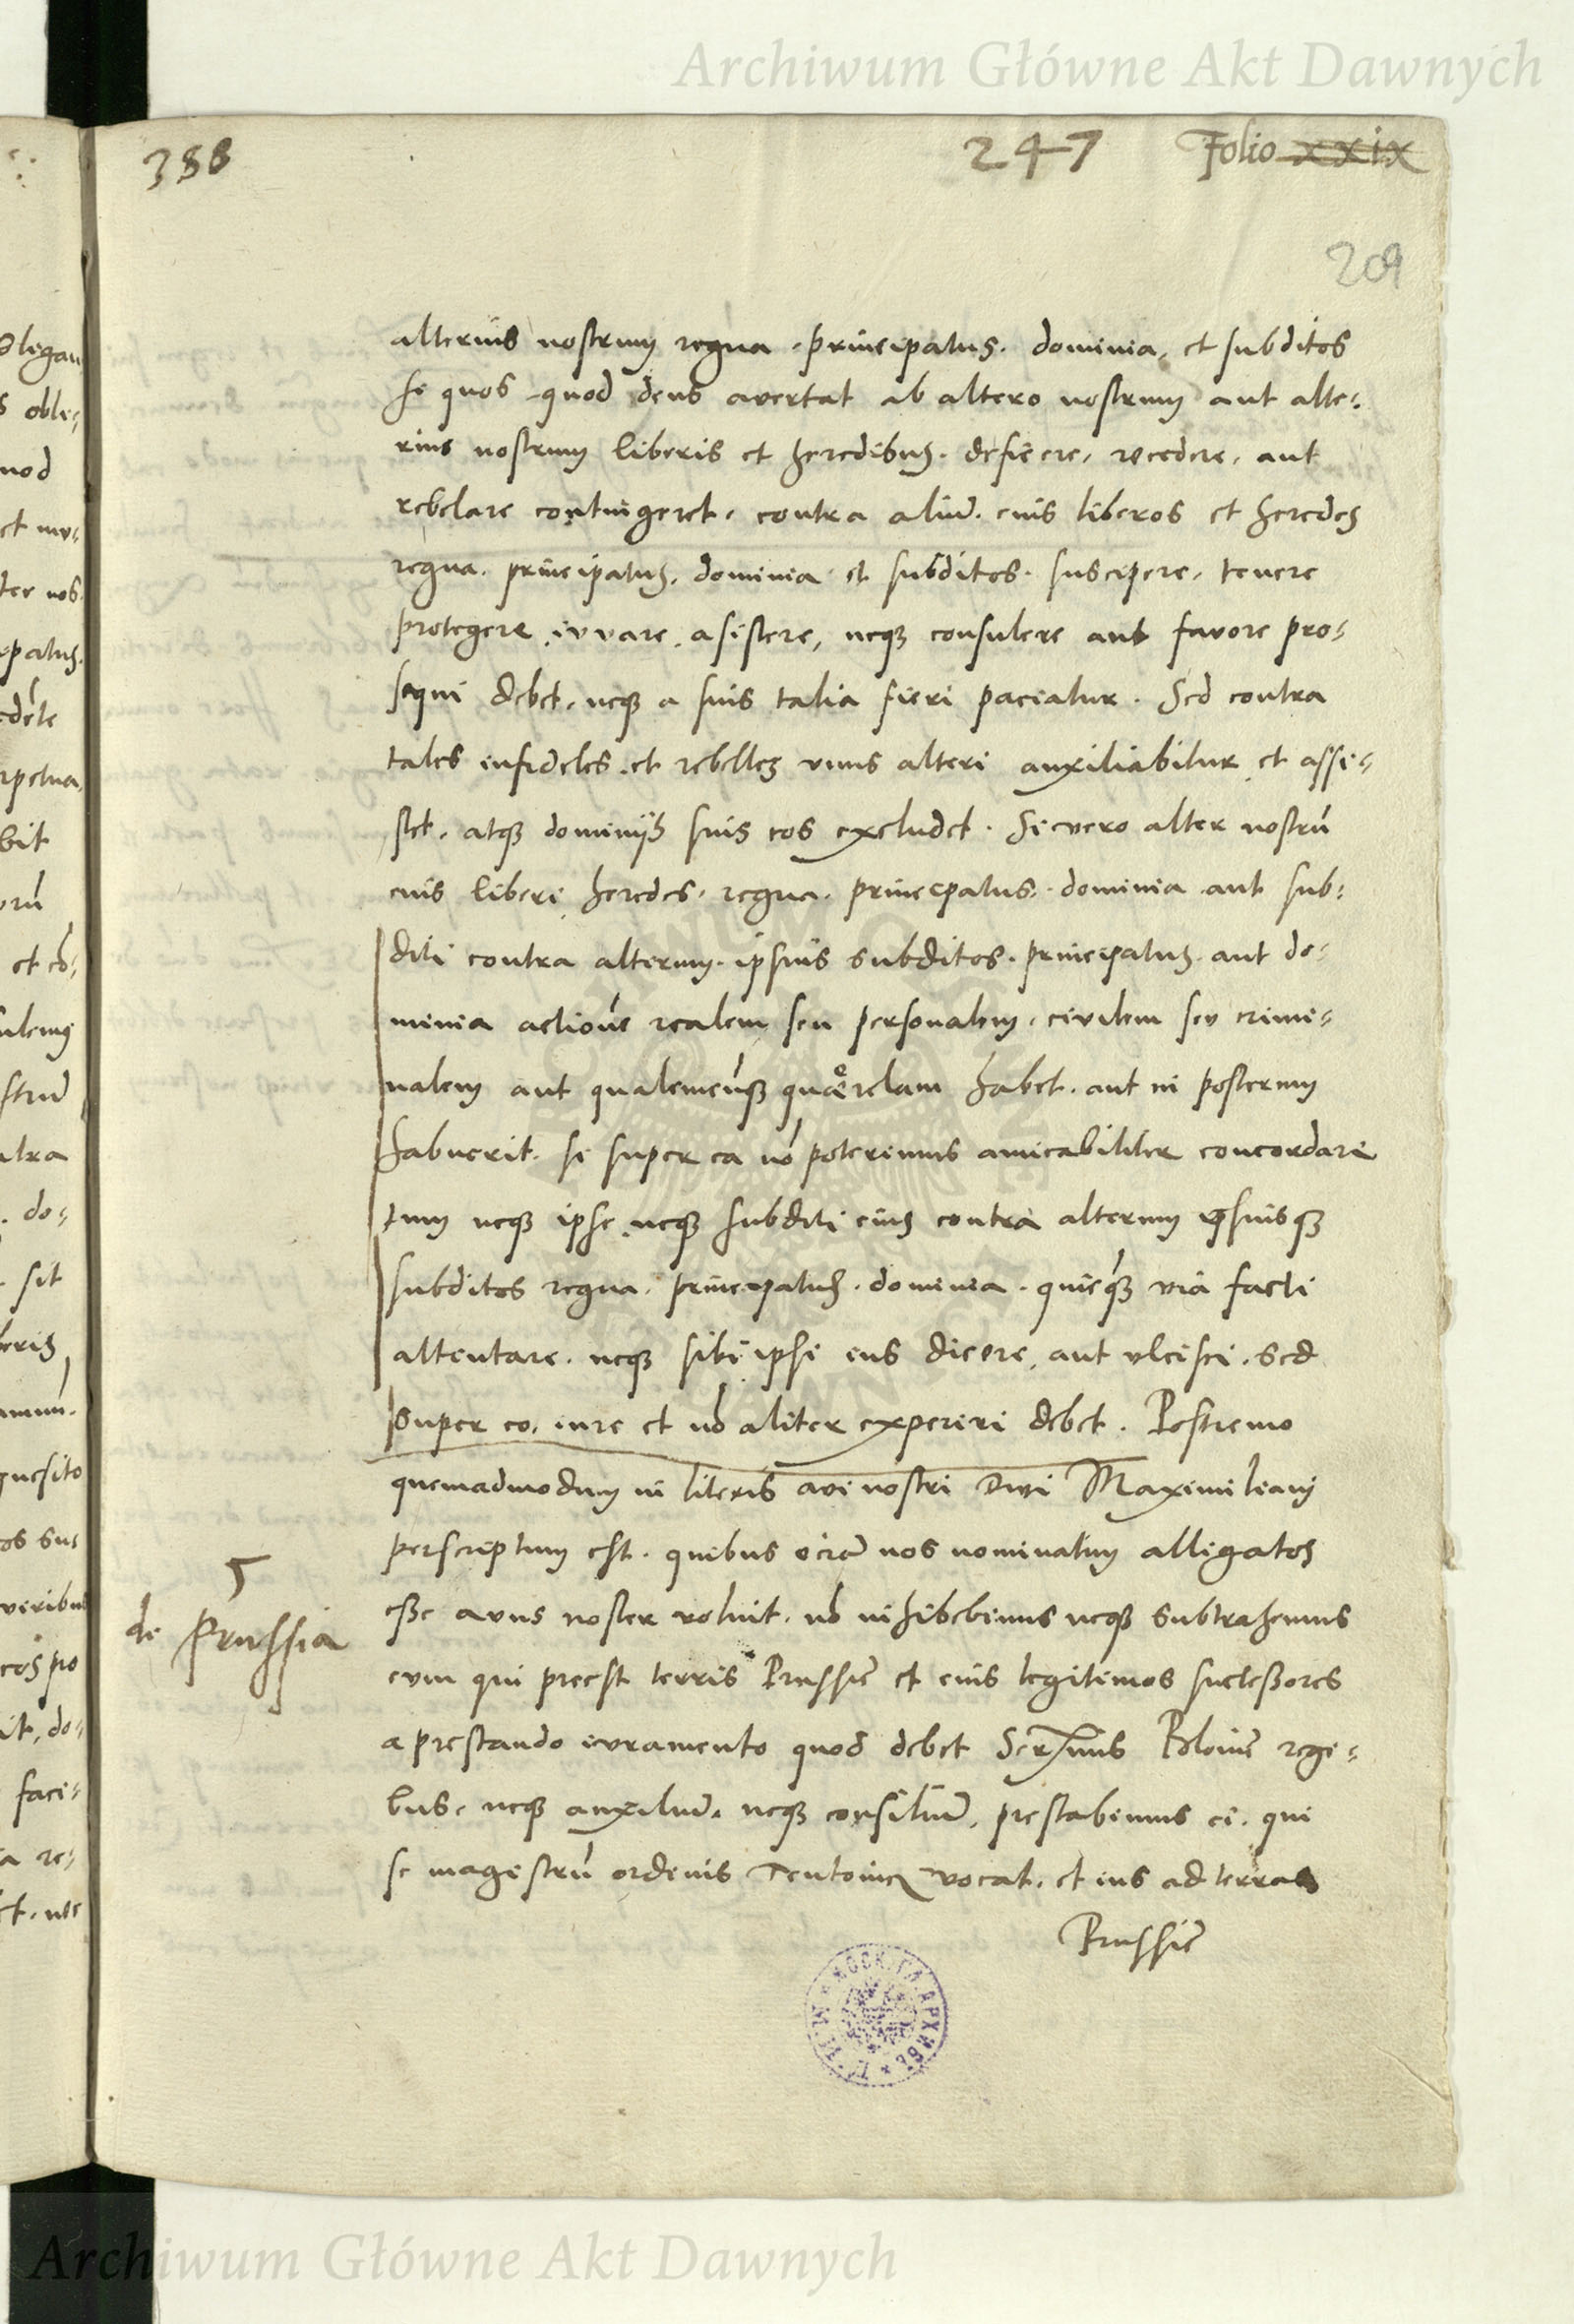 Archiwum Główne Akt Dawnych
388
247 Folio xxix
209
alterius nostrum regna . principatus . dominia, et subditos
si quos quod deus avertat ab altero nostrum aut alte-
rius nostrum liberis et heredibus . deficere, recedere, aut
rebelare contingeret, contra aliū . eius liberos et heredes
regna . principatus . dominia et subditos . suscipere, tenere
protegere . iuvare . asistere, neqꝫ consulere aut favore pro-
sequi debet, neqꝫ a suis talia fieri paciatur . Sed contra
tales infideles . et rebelles unus alteri auxiliabitur et assi-
stet . atqꝫ dominijs suis eos excludet . Si vero alter nostrū
eius liberi heredes . regna . principatus . dominia aut sub-
diti contra alterum . ipsius subditos . principatus aut do-
minia actionē realem seu personalem, civilem seu crimi-
nalem aut qualemcūqꝫ quærelam habet . aut in posterum
habuerit . si super ea nō poterimus amicabiliter concordari
tum neqꝫ ipse neqꝫ subditi eius contra alterum ipsiusqꝫ
subditos regna . principatus . dominia . quicqꝫ via facti
attentare . neqꝫ sibi ipsi ius dicere aut ulcisci . sed
super eo, iure et nō aliter experiri debet . Postremo
quemadmodum in literis avi nostri Divi Maximiliani
perscriptum est . quibus eciā nos nominatim alligatos
esse avus noster voluit . nō inhibebimus neqꝫ subtrahemus
5
de Prussia
eum qui preest terris Prussie et eius legitimos successores
a prestando iuramento quod debet Serᵐⁱˢ Polonie regi-
bus, neqꝫ auxiliū . neqꝫ consiliū . prestabimus ei . qui
se magistrū ordinis Teutonici vocat . et ius ad terras
Prussie
Archiwum Główne Akt Dawnych